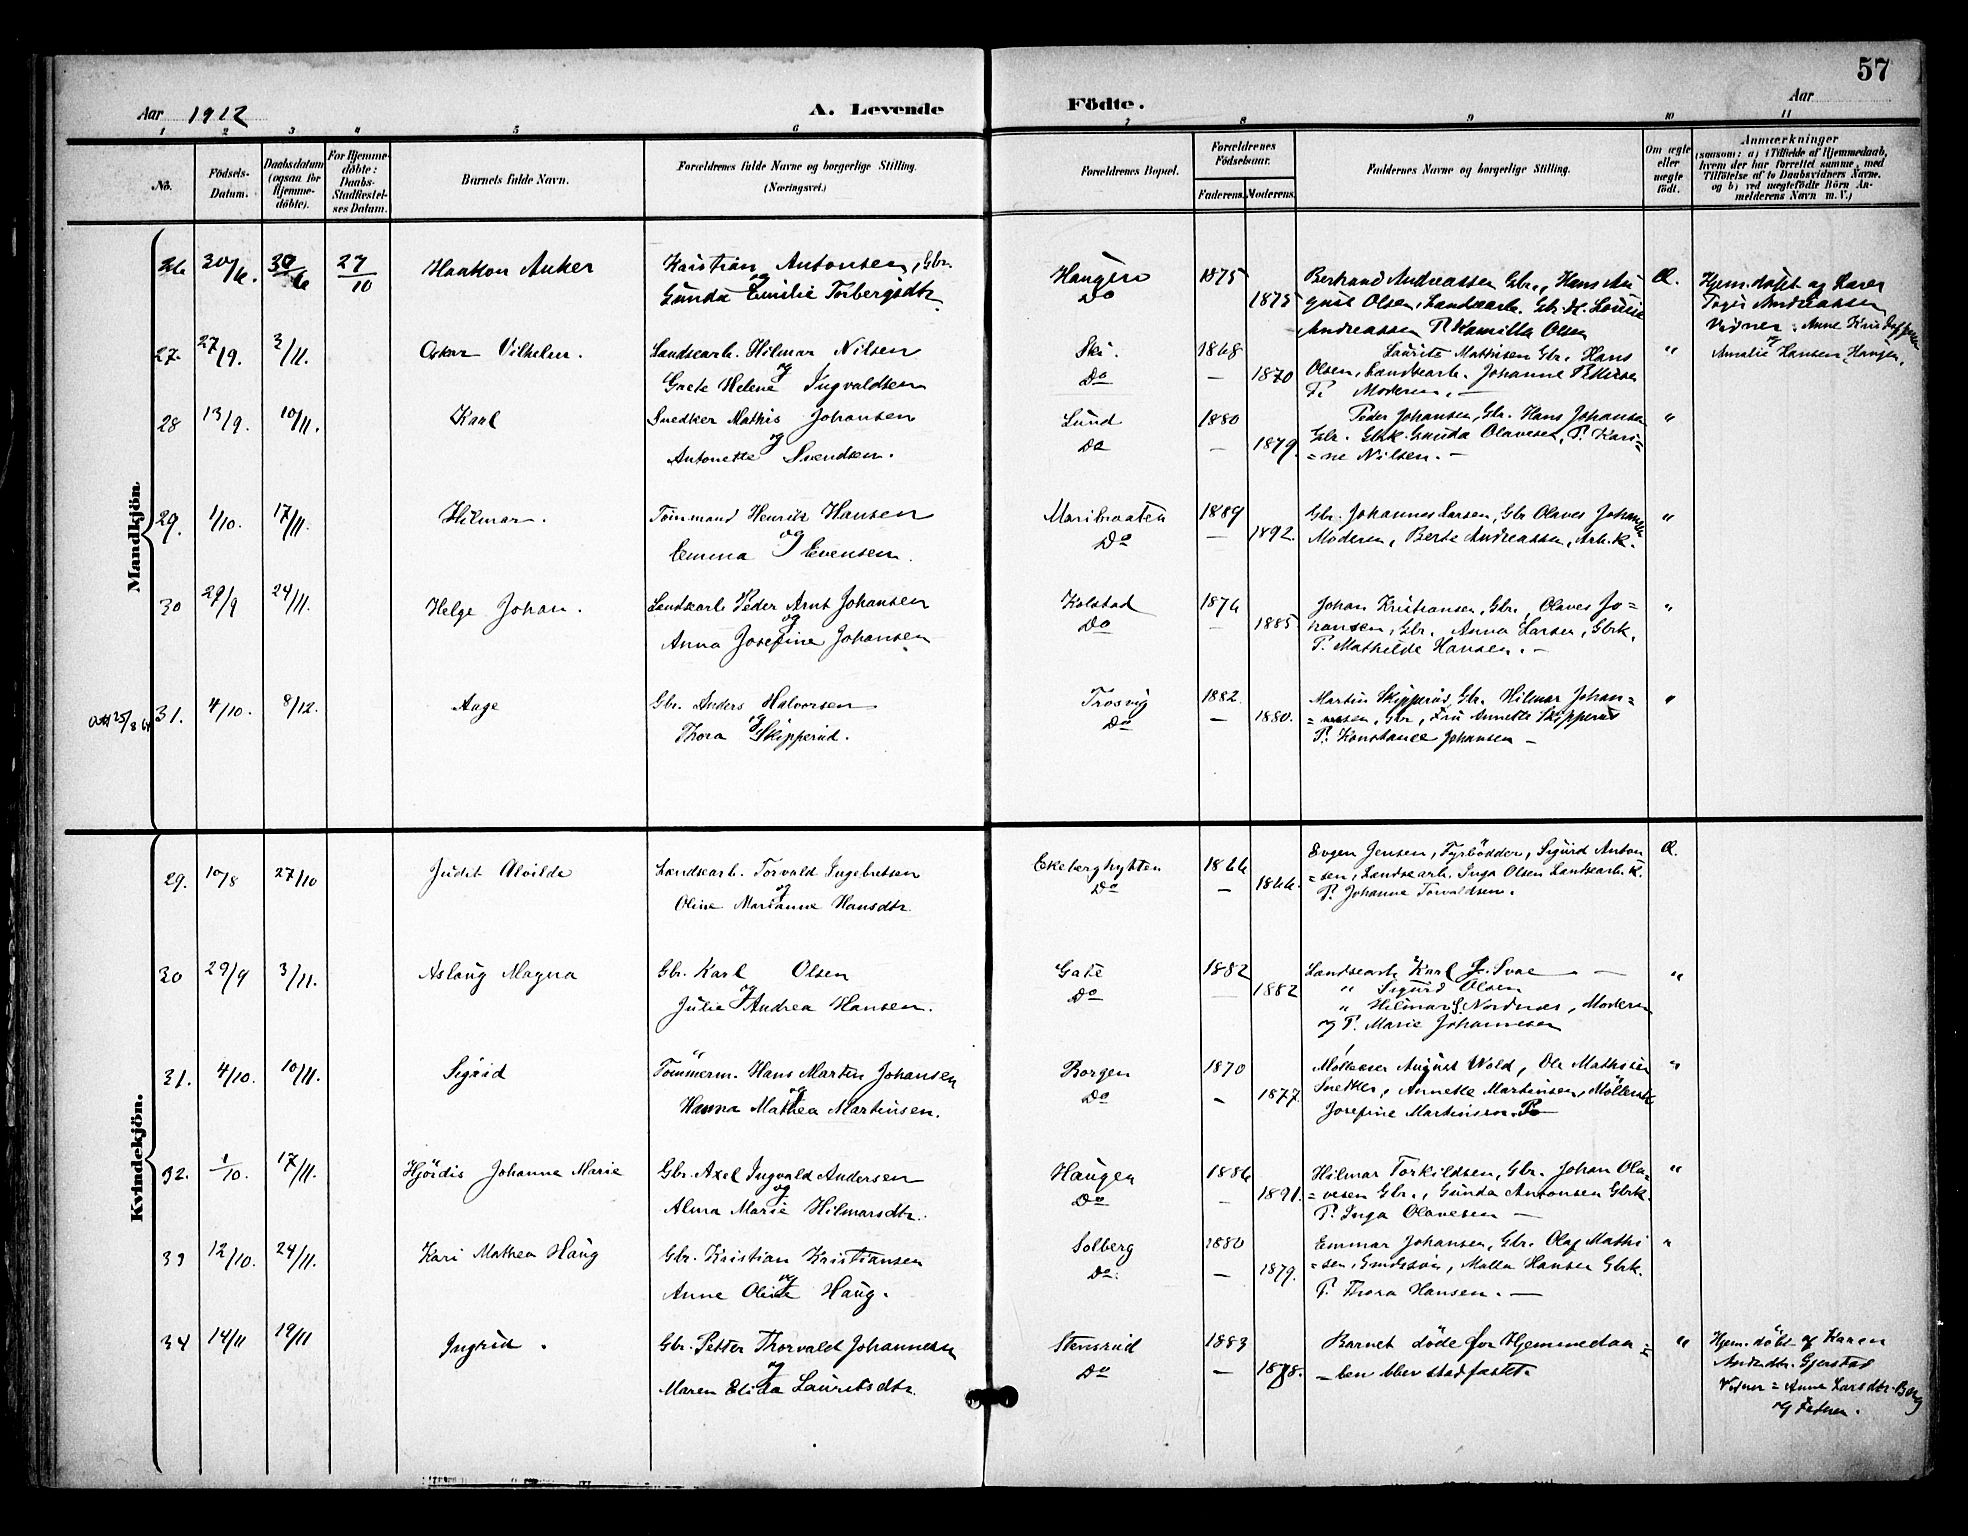 57
Aar 1912
A. Levende
Födte.
Aar
1 2 3 4 5 6 7 8 9 10 11
No.
Födsels-
Datum.
Daabsdatum
(ogsaa for
Hjemme-
döbte).
For Hjemme-
döbte:
Daabs-
Stadfæstel-
ses Datum.
Barnets fulde Navn.
Forældrenes fulde Navne og borgerlige Stilling.
(Næringsvei.)
Forældrenes Bopæl.
Forældrenes
Födselsaar.
Faderens.
Moderens.
Faddernes Navne og borgerlige Stilling.
Om ægte
eller
uægte
födt.
Anmærkninger
(saasom: a) i Tilfælde af Hjemmedaab,
hvem der har forrettet samme, med
Tilföielse af to Daabsvidners Navne.
og b) ved uægtefödte Börn An-
melderens Navn m. V.)
Mandkjön.
26 30/6. 30/6 27/10 Haakon Anker
Kristian Antonsen, Gbr.
og
Gunda Emilie Torbergsdtr.
Haugen
Do
1875
1875
Bertrand Andreassen Gbr., Hans Au-
gust Olsen, Landsarb. Gbr.K. Louise
Andreassen P. Kamilla Olsen
Æ.
Hjem. døbt og Karen
Andreassen
Vidner: Anne
Amalie Hansen, Haugen.
27. 27/9. 3/11. Oskar Vilhelm.
Landsarb. Hilmar Nilsen
og
Grete Helene Ingvaldsen
Ski.
Do
1868
1870
Laurits Mathisen Gbr. Hans
Olsen, Landsarb. Johanne Pettersen
P. Moderen. —
"
28 13/9. 10/11. Karl
Snedker Mathis Johansen
og
Antonette Svendsen.
Lund
Do
1880
1879
Peder Johansen, Gbr. Hans Johansen
Gbr. Gbrk. Gunda Olavesen, P. Kari-
=ne Nilsen. —
"
29. 1/10. 17/11. Hilmar.
Tömmand Henrik Hansen
og
Emma Evensen.
Maribraaten
Do
1889
1892.
Gbr. Johannes Larsen, Gbr Olaves Johansen
Moderen, Berte Andreassen, Arb.K.
"
30 29/9 24/11. Helge Johan.
Landsarb Peder Arnt Johansen
og
Anna Josefine Johansen
Kolstad
Do
1876
1885
Johan Kristiansen, Gbr, Olaves Jo=
hansen, Gbr. Anna Larsen, Gbrk.
P. Mathilde Hansen. —
"
31. 4/10. 8/12. Aage
Gbr. Anders Halvorsen
og
Thora Skipperud.
Trosvig
Do
1882
1880.
Martin Skipperud, Gbr. Hilmar Johan=
=nesen, Gbr, Fru Annette Skipperud
P. Konstance Johansen —
"
Kvindekjön.
29. 10/8 27/10 Judit Alvilde
Landsarb. Torvald Ingebretsen
og
Oline Marianne Hansdtr.
Ekeberghytten
Do
1866
1866.
Evgen Jensen, Fyrbödder, Sigurd Anton
=sen, Landsarb. Inga Olsen Landsarb.k.
P. Johanne Torvaldsen.
Æ.
30 29/9 3/11. Aslaug Magna
Gbr. Karl Olsen
og
Julie Andrea Hansen.
Gate
Do
1882
1882
Landsarb Karl J. Svae —
" Sigurd Olsen
" Hilmar S. Nordnæs, Moderen
og P. Marie Johannesen
"
31. 4/10. 10/11. Sigrid
Tömmerm. Hans Martin Johansen
og
Hanna Mathea Martinsen.
Borgen
Do
1870
1877.
Møllasser August Wold, Ole Mathisen
Snedker, Annette Martinsen, Möllersk
Josefine Martinsen. P.
"
32. 1/10. 17/11. Hjördis Johanne Marie
Gbr. Axel Ingvald Andersen
og
Alma Marie Hilmarsdtr.
Haugen
Do
1886
1891.
Hilmar Torkildsen, Gbr. Johan Ola-
=vesen Gbr., Gunda Antonsen Gbrk.
P. Inga Olavesen —
"
33 12/10. 24/11. Kari Mathea Haug
Gbr. Kristian Kristiansen
og
Anne Oline Haug.
Solberg
Do.
1880
1879.
Emmar Johansen, Gbr. Olaf Mathi
=sen, Malla Hansen Gbrk.
P. Thora Hansen. —
"
34 14/11 19/11 Ingrid.
Gbr. Petter Thorvald Johannesen
og
Maren Elida Lauritsdtr.
Stensrud
Do
1883
1878.
Barnet döde för Hjemmedaa=
—ben blev stadfæstet.
"
Hjem. döbt af Karen
Andrdtr. Gjerstad
Vidner = Anne Larsdtr. Berg
og Fadren.